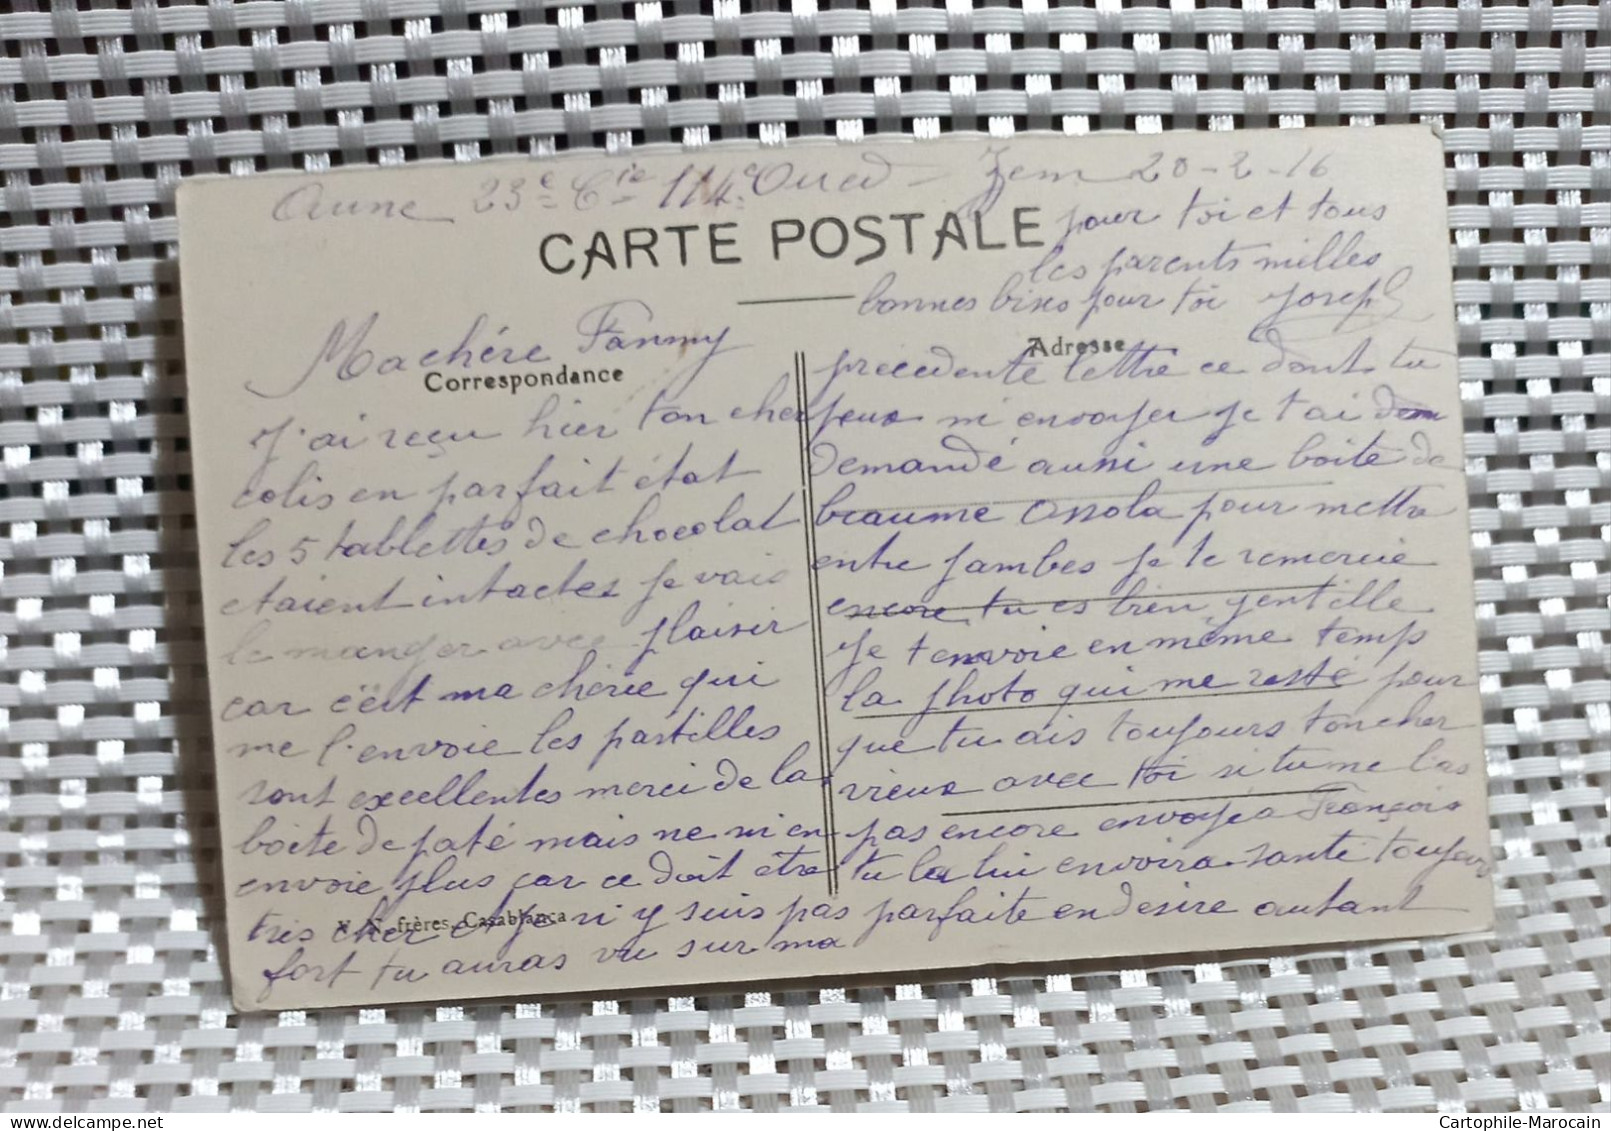 Aune 23e Cie 114e Oued - Zem 20-2-16
CARTE POSTALE
Machére Fanny
Correspondance
J'ai reçu hier ton cher
colis en parfait état
les 5 tablettes de chocolat
etaient intactes je vais
le manger avec plaisir
car c'est ma chérie qui
me l'envoie les pastilles
sont excellentes merci de la
boite de paté mais ne m'en
envoie plus car ce doit étre
tres cher et je ni y suis pas
fort tu auras vu sur ma
V. N. frères, Casablanca
Adresse
precedente lettre ce dont tu
peux m envoyer je t ai dem
demandé aussi une boite de
beaume Ossola pour mettre
entre jambes je te remercie
encore tu es bien gentille
Je t envoie en même temp
la photo qui me resté pour
que tu ais toujours ton cher
vieux avec toi si tu me l'as
pas encore envoyé a François
tu la lui envoira santé toujours
parfaite en desire autant
pour toi et tous
les parents milles
bonnes bises pour toi Joseph
Cartophile-Marocain